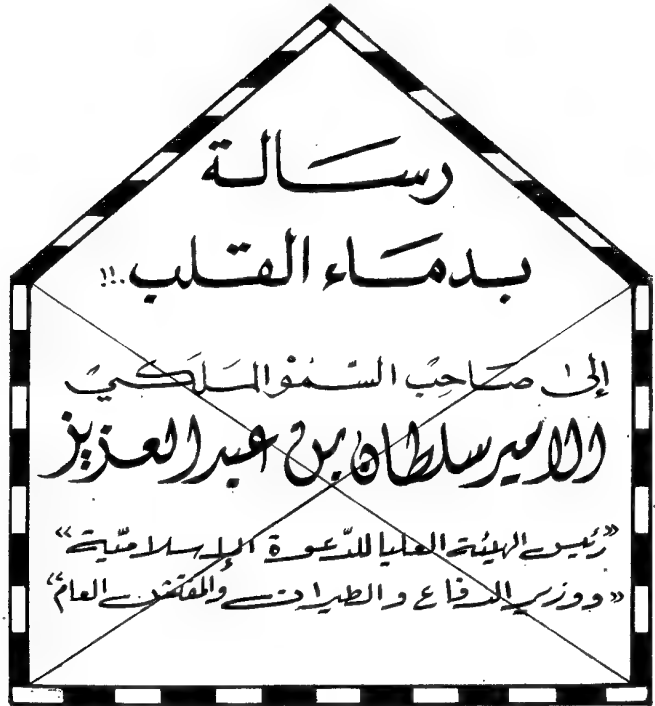 رسالة
بدماء القلب..!!
إلى صاحب السمو الملكي
الامير سلطان بن عبد العزيز
"رئيس الهيئة العليا للدعوة الإسلامية"
"ووزير الدفاع والطيران والمفتش العام"